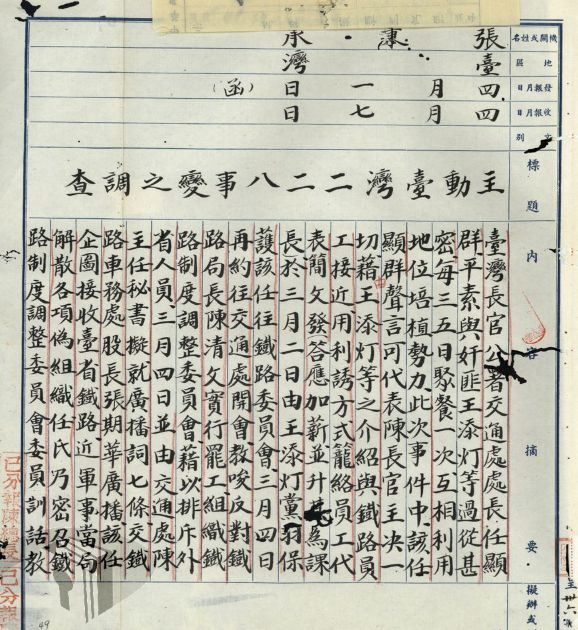 機關或姓名
張 溥 承
地區
臺灣
發報月日
四月一日（函）
收報月日
四月七日
別
標題
主動臺灣二二八事變之調查
內容摘要
臺灣長官公署交通處處長任顯
群平素與奸匪王添灯等過從甚
密每三五日聚餐一次互相利用
地位培植勢力此次事件中該任
顯群聲言可代表陳長官主決一
切藉由王添灯等之介紹與鐵路員
工接近用利誘方式籠絡員工代
表簡文發答應加薪並升其為課
長於三月二日由王添灯黨羽保
護該任往鐵路委員會三月四日
再約往交通處開會教唆反對鐵
路局長陳清文實行罷工組織鐵
路制度調整委員會藉以排斥外
省人員三月四日並由交通處陳
主任秘書擬就廣播詞七條交鐵
路車務處股長張期華廣播該任
企圖接收臺省鐵路近軍事當局
解散各項偽組織任氏乃密召鐵
路制度調整委員會委員訓話教
擬辦或
49